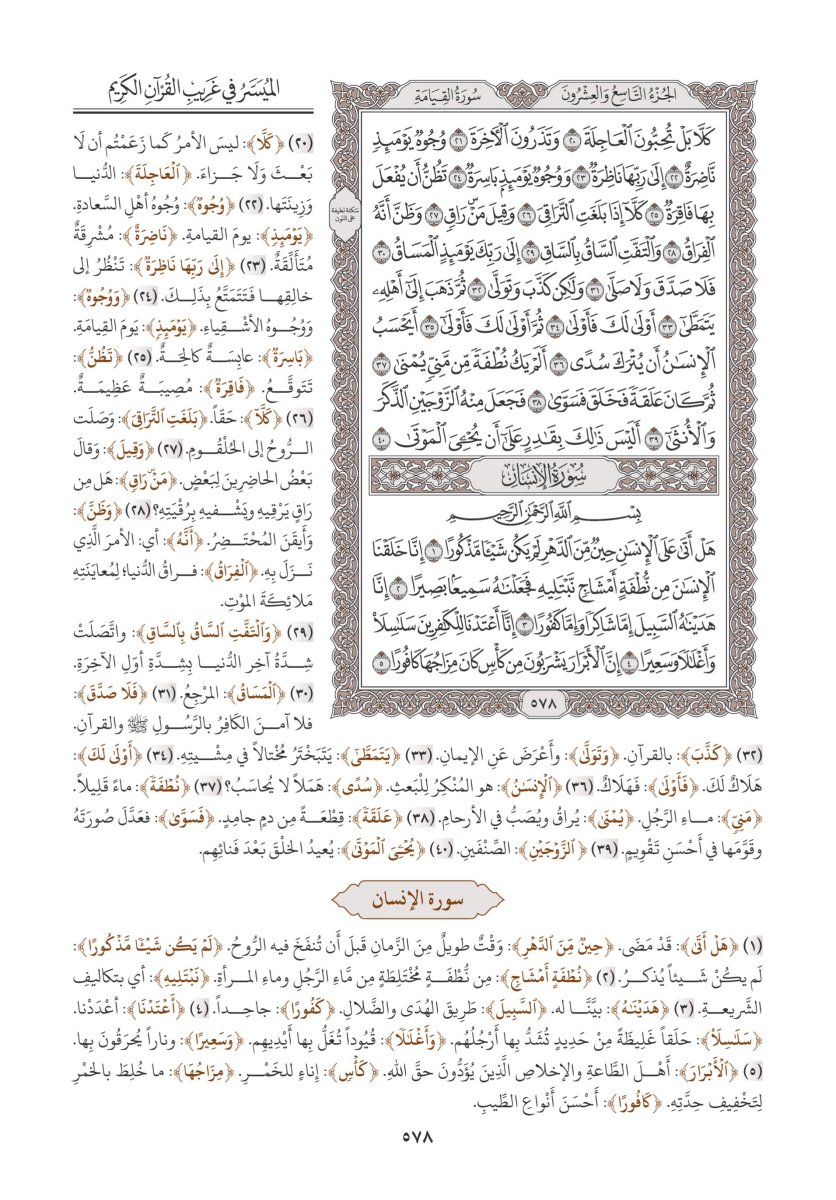 الجُزْءُ التَّاسِعُ وَالعِشْرُونَ
سُورَةُ القِيَامَةِ
كَلَّا بَلْ تُحِبُّونَ ٱلْعَاجِلَةَ ٢٠ وَتَذَرُونَ ٱلْأٓخِرَةَ ٢١ وُجُوهٌ يَوْمَئِذٍ
نَّاضِرَةٌ ٢٢ إِلَىٰ رَبِّهَا نَاظِرَةٌ ٢٣ وَوُجُوهٌ يَوْمَئِذٍۭ بَاسِرَةٌ ٢٤ تَظُنُّ أَن يُفْعَلَ
بِهَا فَاقِرَةٌ ٢٥ كَلَّآ إِذَا بَلَغَتِ ٱلتَّرَاقِيَ ٢٦ وَقِيلَ مَنْۜ رَاقٍ ٢٧ وَظَنَّ أَنَّهُ
ٱلْفِرَاقُ ٢٨ وَٱلْتَفَّتِ ٱلسَّاقُ بِٱلسَّاقِ ٢٩ إِلَىٰ رَبِّكَ يَوْمَئِذٍ ٱلْمَسَاقُ ٣٠
فَلَا صَدَّقَ وَلَا صَلَّىٰ ٣١ وَلَٰكِن كَذَّبَ وَتَوَلَّىٰ ٣٢ ثُمَّ ذَهَبَ إِلَىٰٓ أَهْلِهِۦ
يَتَمَطَّىٰٓ ٣٣ أَوْلَىٰ لَكَ فَأَوْلَىٰ ٣٤ ثُمَّ أَوْلَىٰ لَكَ فَأَوْلَىٰٓ ٣٥ أَيَحْسَبُ
ٱلْإِنسَٰنُ أَن يُتْرَكَ سُدًى ٣٦ أَلَمْ يَكُ نُطْفَةً مِّن مَّنِيٍّ يُمْنَىٰ ٣٧
ثُمَّ كَانَ عَلَقَةً فَخَلَقَ فَسَوَّىٰ ٣٨ فَجَعَلَ مِنْهُ ٱلزَّوْجَيْنِ ٱلذَّكَرَ
وَٱلْأُنثَىٰٓ ٣٩ أَلَيْسَ ذَٰلِكَ بِقَٰدِرٍ عَلَىٰٓ أَن يُحْـِۧيَ ٱلْمَوْتَىٰ ٤٠
سُورَةُ الإِنسَانِ
بِسْمِ ٱللَّهِ ٱلرَّحْمَٰنِ ٱلرَّحِيمِ
هَلْ أَتَىٰ عَلَى ٱلْإِنسَٰنِ حِينٌ مِّنَ ٱلدَّهْرِ لَمْ يَكُن شَيْـًٔا مَّذْكُورًا ١ إِنَّا خَلَقْنَا
ٱلْإِنسَٰنَ مِن نُّطْفَةٍ أَمْشَاجٍ نَّبْتَلِيهِ فَجَعَلْنَٰهُ سَمِيعًۢا بَصِيرًا ٢ إِنَّا
هَدَيْنَٰهُ ٱلسَّبِيلَ إِمَّا شَاكِرًا وَإِمَّا كَفُورًا ٣ إِنَّآ أَعْتَدْنَا لِلْكَٰفِرِينَ سَلَٰسِلَا۟
وَأَغْلَٰلًا وَسَعِيرًا ٤ إِنَّ ٱلْأَبْرَارَ يَشْرَبُونَ مِن كَأْسٍ كَانَ مِزَاجُهَا كَافُورًا ٥
٥٧٨
سكتة لطيفة
على النون
المُيَسَّرُ في غَرِيبِ القُرْآنِ الكَرِيمِ
(٢٠) ﴿كَلَّا﴾: ليسَ الأمرُ كَما زَعَمْتُم أن لَا
بَعْثَ وَلَا جَزاءَ. ﴿ٱلْعَاجِلَةَ﴾: الدُّنيا
وَزِينَتَها. (٢٢) ﴿وُجُوهٌ﴾: وُجُوهُ أَهْلِ السَّعادةِ.
﴿يَوْمَئِذٍ﴾: يومَ القيامةِ. ﴿نَاضِرَةٌ﴾: مُشْرِقَةٌ
مُتَأَلِّقَةٌ. (٢٣) ﴿إِلَىٰ رَبِّهَا نَاظِرَةٌ﴾: تَنْظُرُ إلى
خالِقِها فَتَتَمَتَّعُ بِذَلِكَ. (٢٤) ﴿وَوُجُوهٌ﴾:
وَوُجُوهُ الأشْقِياءِ. ﴿يَوْمَئِذٍۭ﴾: يَومَ القِيَامَةِ.
﴿بَاسِرَةٌ﴾: عابِسَةٌ كالِحَةٌ. (٢٥) ﴿تَظُنُّ﴾:
تَتَوقَّعُ. ﴿فَاقِرَةٌ﴾: مُصِيبَةٌ عَظِيمَةٌ.
(٢٦) ﴿كَلَّآ﴾: حَقاً. ﴿بَلَغَتِ ٱلتَّرَاقِيَ﴾: وَصَلَت
الرُّوحُ إلى الحُلْقُومِ. (٢٧) ﴿وَقِيلَ﴾: وَقالَ
بَعْضُ الحاضِرِينَ لِبَعْضٍ. ﴿مَنْۜ رَاقٍ﴾: هَل مِن
رَاقٍ يَرْقِيهِ ويَشْفيهِ بِرُقْيَتِهِ؟ (٢٨) ﴿وَظَنَّ﴾:
وَأَيقَنَ المُحْتَضِرُ. ﴿أَنَّهُ﴾: أي: الأمرَ الَّذِي
نَزَلَ بِهِ. ﴿ٱلْفِرَاقُ﴾: فراقُ الدُّنيا؛ لِمُعايَنَتِهِ
مَلائِكَةَ الموْتِ.
(٢٩) ﴿وَٱلْتَفَّتِ ٱلسَّاقُ بِٱلسَّاقِ﴾: واتَّصَلَتْ
شِدَّةُ آخِرِ الدُّنيا بِشِدَّةِ أوّلِ الآخِرَةِ.
(٣٠) ﴿ٱلْمَسَاقُ﴾: المرْجِعُ. (٣١) ﴿فَلَا صَدَّقَ﴾:
فلا آمنَ الكَافِرُ بالرَّسُولِ ﷺ والقرآنِ.
(٣٢) ﴿كَذَّبَ﴾: بالقرآنِ. ﴿وَتَوَلَّىٰ﴾: وأَعْرَضَ عَنِ الإيمانِ. (٣٣) ﴿يَتَمَطَّىٰٓ﴾: يَتَبَخْتَرُ مُخْتالاً في مِشْيتِهِ. (٣٤) ﴿أَوْلَىٰ لَكَ﴾:
هَلَاكٌ لَكَ. ﴿فَأَوْلَىٰ﴾: فَهَلَاكٌ. (٣٦) ﴿ٱلْإِنسَٰنُ﴾: هو المُنْكِرُ لِلْبَعثِ. ﴿سُدًى﴾: هَمَلاً لا يُحاسَبُ؟ (٣٧) ﴿نُطْفَةً﴾: ماءً قَلِيلاً.
﴿مَنِيٍّ﴾: ماءِ الرَّجُلِ. ﴿يُمْنَىٰ﴾: يُراقُ ويُصَبُّ في الأرحامِ. (٣٨) ﴿عَلَقَةً﴾: قِطْعَةً مِن دمٍ جامدٍ. ﴿فَسَوَّىٰ﴾: فعدَّلَ صُورَتَهُ
وقَوَّمَها في أَحْسَنِ تَقْوِيمٍ. (٣٩) ﴿ٱلزَّوْجَيْنِ﴾: الصِّنْفَينِ. (٤٠) ﴿يُحْـِۧيَ ٱلْمَوْتَىٰ﴾: يُعيدُ الخلْقَ بَعْدَ فَنائِهِم.
سورة الإنسان
(١) ﴿هَلْ أَتَىٰ﴾: قَدْ مَضَى. ﴿حِينٌ مِّنَ ٱلدَّهْرِ﴾: وَقْتٌ طويلٌ مِنَ الزَّمانِ قَبلَ أَن تُنفَخَ فيه الرُّوحُ. ﴿لَمْ يَكُن شَيْـًٔا مَّذْكُورًا﴾:
لَم يكُنْ شَيئاً يُذكرُ. (٢) ﴿نُطْفَةٍ أَمْشَاجٍ﴾: مِن نُّطْفَةٍ مُخْتَلِطَةٍ مِن مَّاءِ الرَّجُلِ وماءِ المرأةِ. ﴿نَبْتَلِيهِ﴾: أي بتكاليفِ
الشَّريعةِ. (٣) ﴿هَدَيْنَٰهُ﴾: بيَّنَّا له. ﴿ٱلسَّبِيلَ﴾: طَرِيقَ الهُدَى والضَّلالِ. ﴿كَفُورًا﴾: جاحِداً. (٤) ﴿أَعْتَدْنَا﴾: أعْدَدْنا.
﴿سَلَٰسِلَا۟﴾: حَلَقاً غَلِيظَةً مِنْ حَدِيدٍ تُشَدُّ بِها أَرْجُلُهُم. ﴿وَأَغْلَٰلًا﴾: قُيُوداً تُغَلُّ بِها أَيْدِيهِم. ﴿وَسَعِيرًا﴾: وناراً يُحرَقُونَ بِها.
(٥) ﴿ٱلْأَبْرَارَ﴾: أَهْلَ الطَّاعةِ والإخلاصِ الَّذِينَ يُؤَدُّونَ حقَّ اللهِ. ﴿كَأْسٍ﴾: إناءٍ للخَمْرِ. ﴿مِزَاجُهَا﴾: ما خُلِطَ بالخَمْرِ
لِتَخْفِيفِ حِدَّتِهِ. ﴿كَافُورًا﴾: أَحْسَنَ أَنْواعِ الطِّيبِ.
٥٧٨